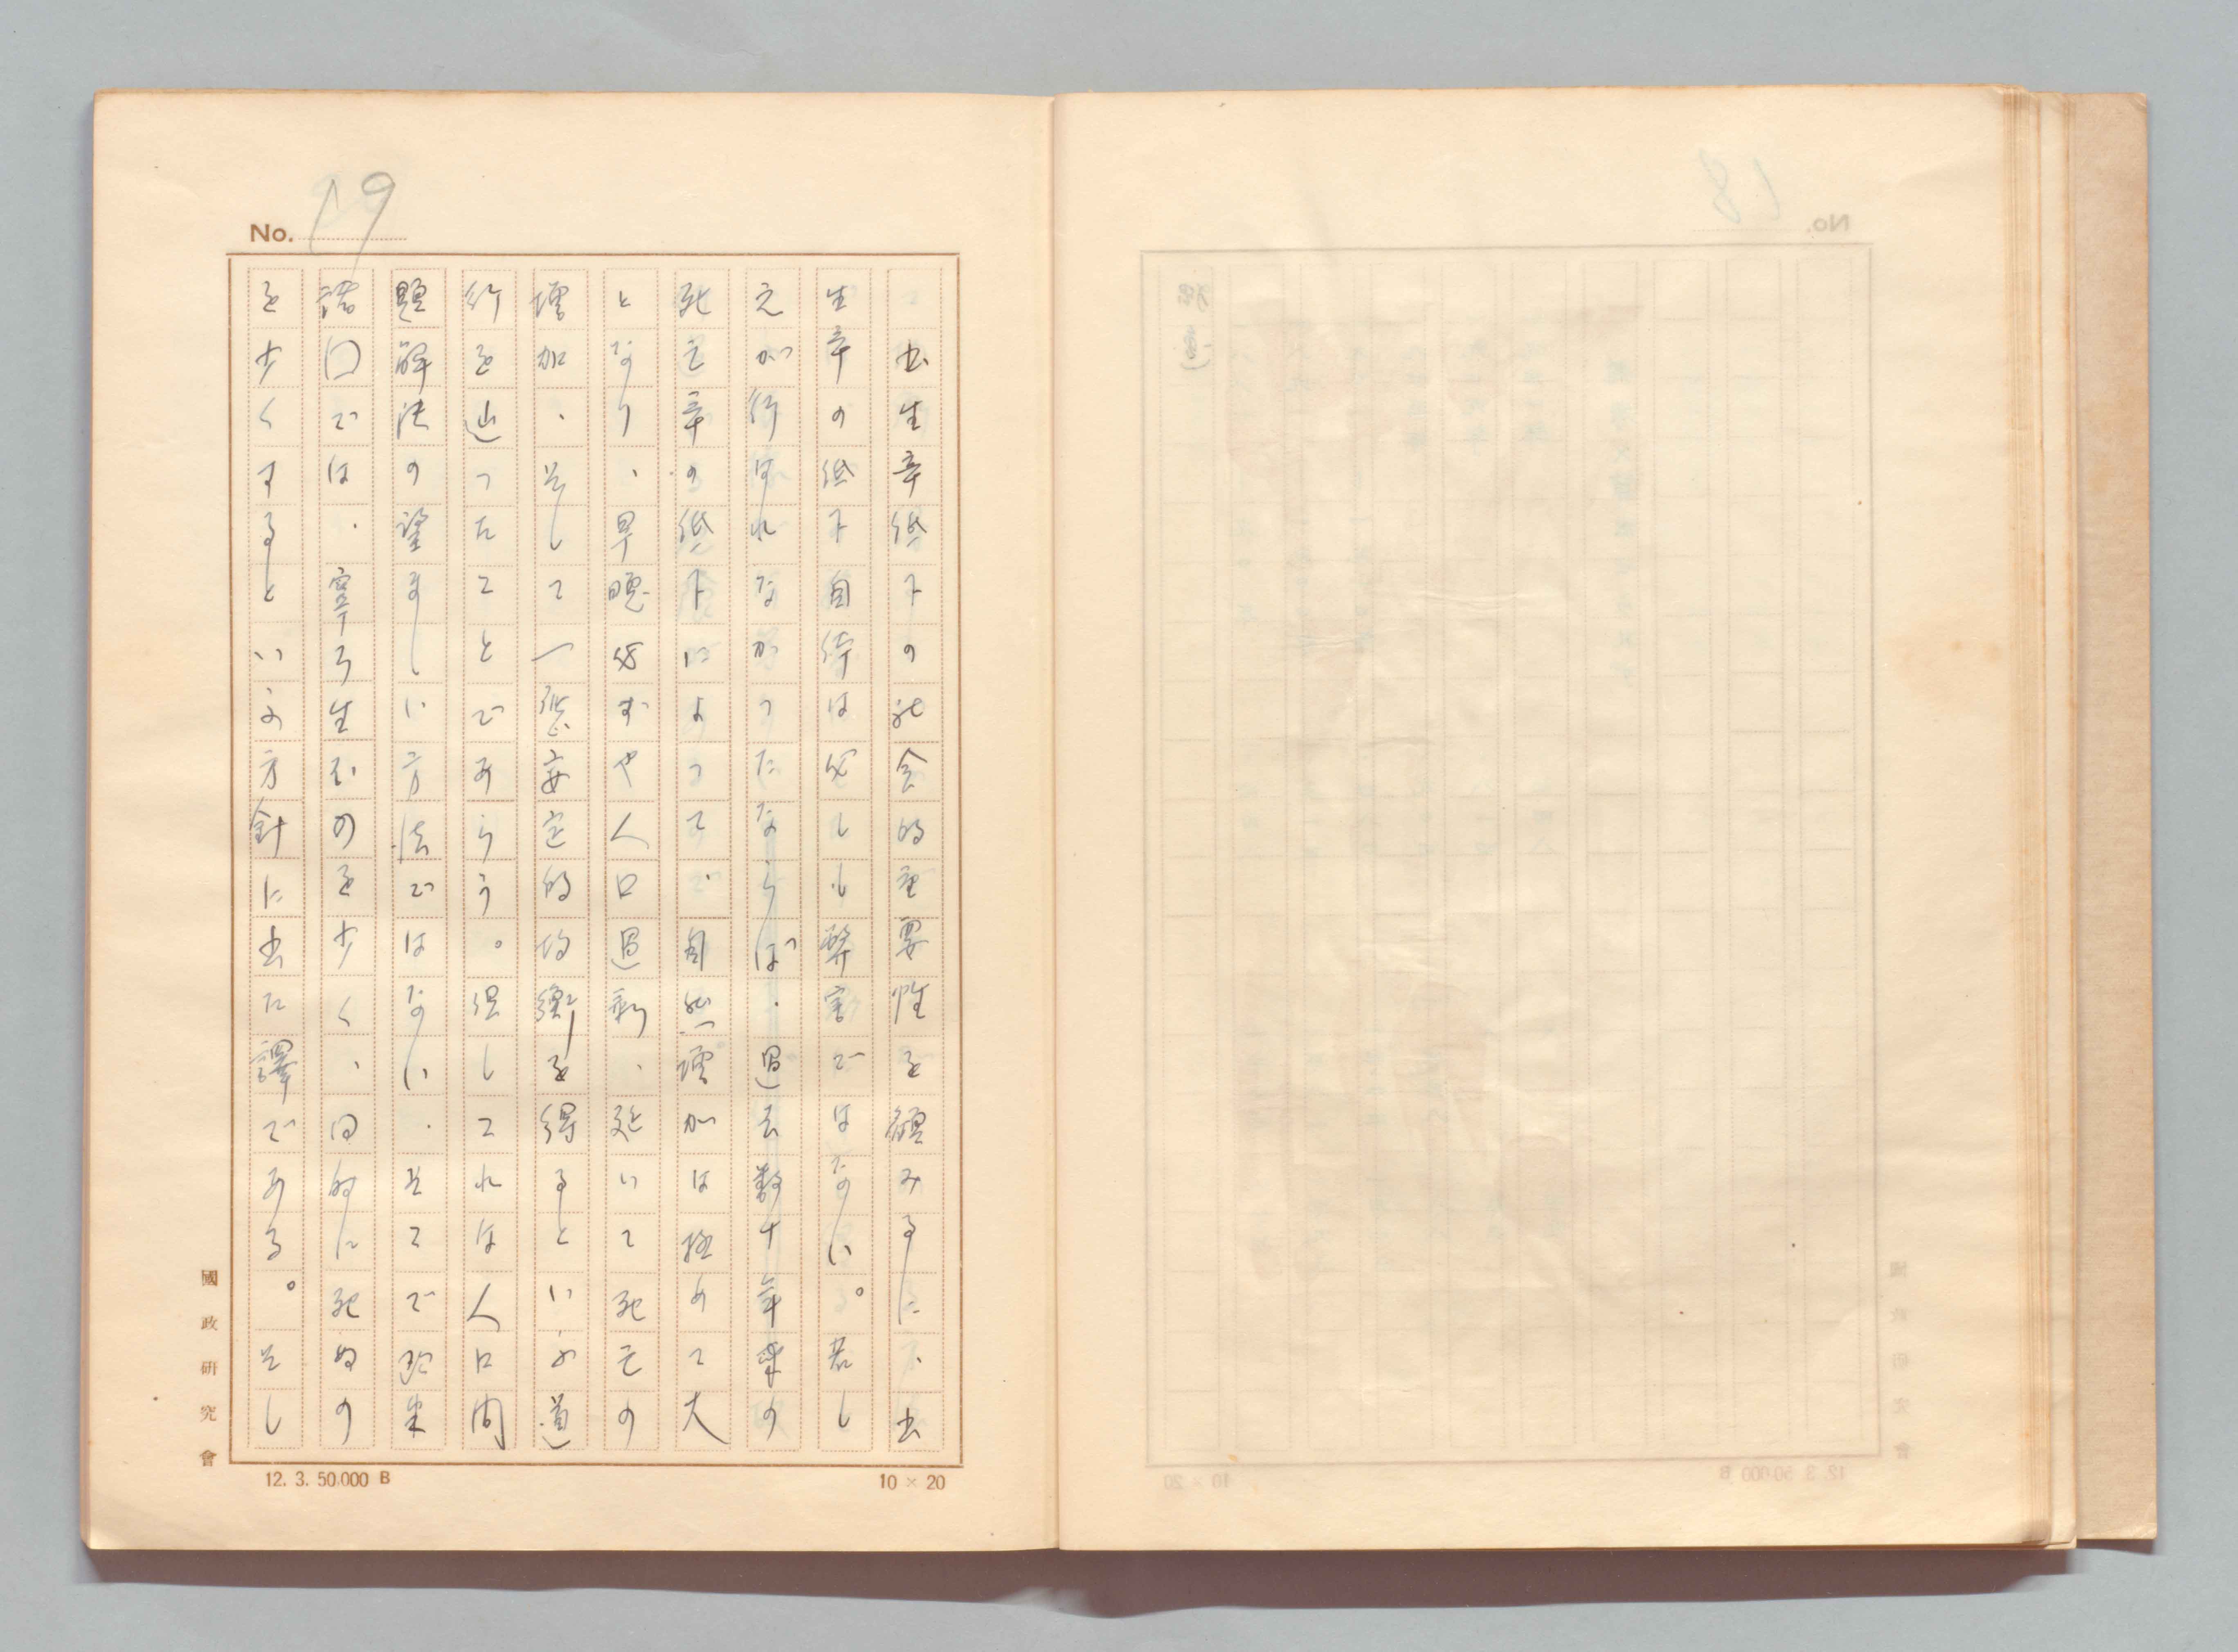 No. 19
出生率低下の社会的重要性を顧みるに、出
生率の低下自体は必しも弊害ではない。若し
之が行はれなかつたならば、過去数十年来の
死亡率の低下によつて、自然増加は極めて大
となり、早晩必ずや人口過剰、延いて死亡の
増加、そして一應安定的均衡を得るといふ道
行を辿つたことであらう。但しこれは人口問
題解決の望ましい方法ではない、そこで欧米
諸国では、寧ろ生むのを少く、同時に死ぬの
を少くするといふ方針に出た譯である。そし
國政研究會
12. 3. 50.000 B
10 × 20